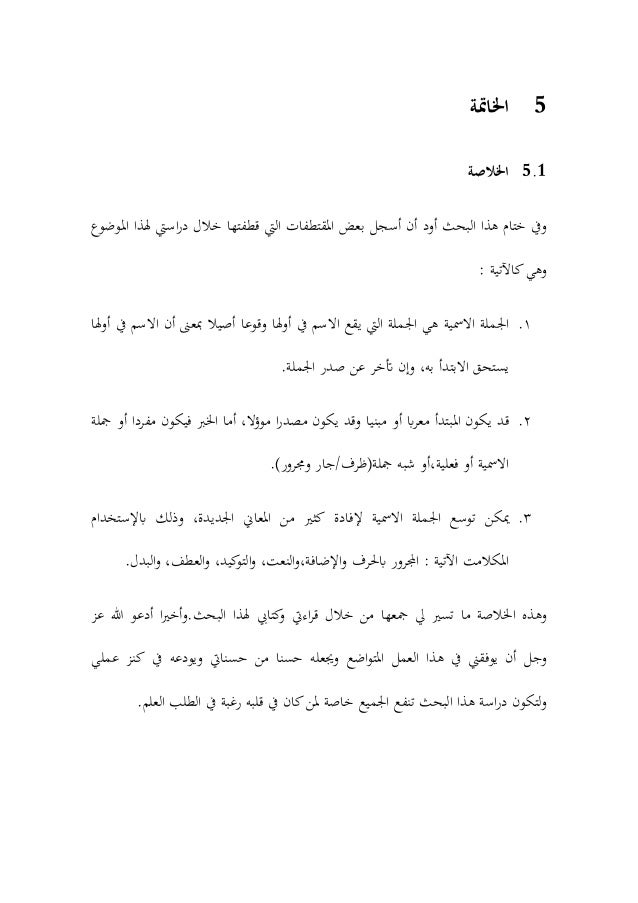 5 الخاتمة
5.1 الخلاصة
وفي ختام هذا البحث أود أن أسجل بعض المقتطفات التي قطفتها خلال دراستي لهذا الموضوع
وهي كالآتية :
١. الجملة الاسمية هي الجملة التي يقع الاسم في أولها وقوعا أصيلا بمعنى أن الاسم في أولها
يستحق الابتدأ به، وإن تأخر عن صدر الجملة.
٢. قد يكون المبتدأ معربا أو مبنيا وقد يكون مصدرا موؤلا، أما الخبر فيكون مفردا أو جملة
الاسمية أو فعلية،أو شبه جملة(ظرف/جار ومجرور).
٣. يمكن توسع الجملة الاسمية لإفادة كثير من المعاني الجديدة، وذلك بالإستخدام
المكلامت الآتية : المجرور بالحرف والإضافة،والنعت، والتوكيد، والعطف، والبدل.
وهذه الخلاصة ما تسير لي جمعها من خلال قراءتي وكتابي لهذا البحث.وأخيرا أدعو الله عز
وجل أن يوفقني في هذا العمل المتواضع ويجعله حسنا من حسناتي ويودعه في كنز عملي
ولتكون دراسة هذا البحث تنفع الجميع خاصة لمن كان في قلبه رغبة في الطلب العلم.